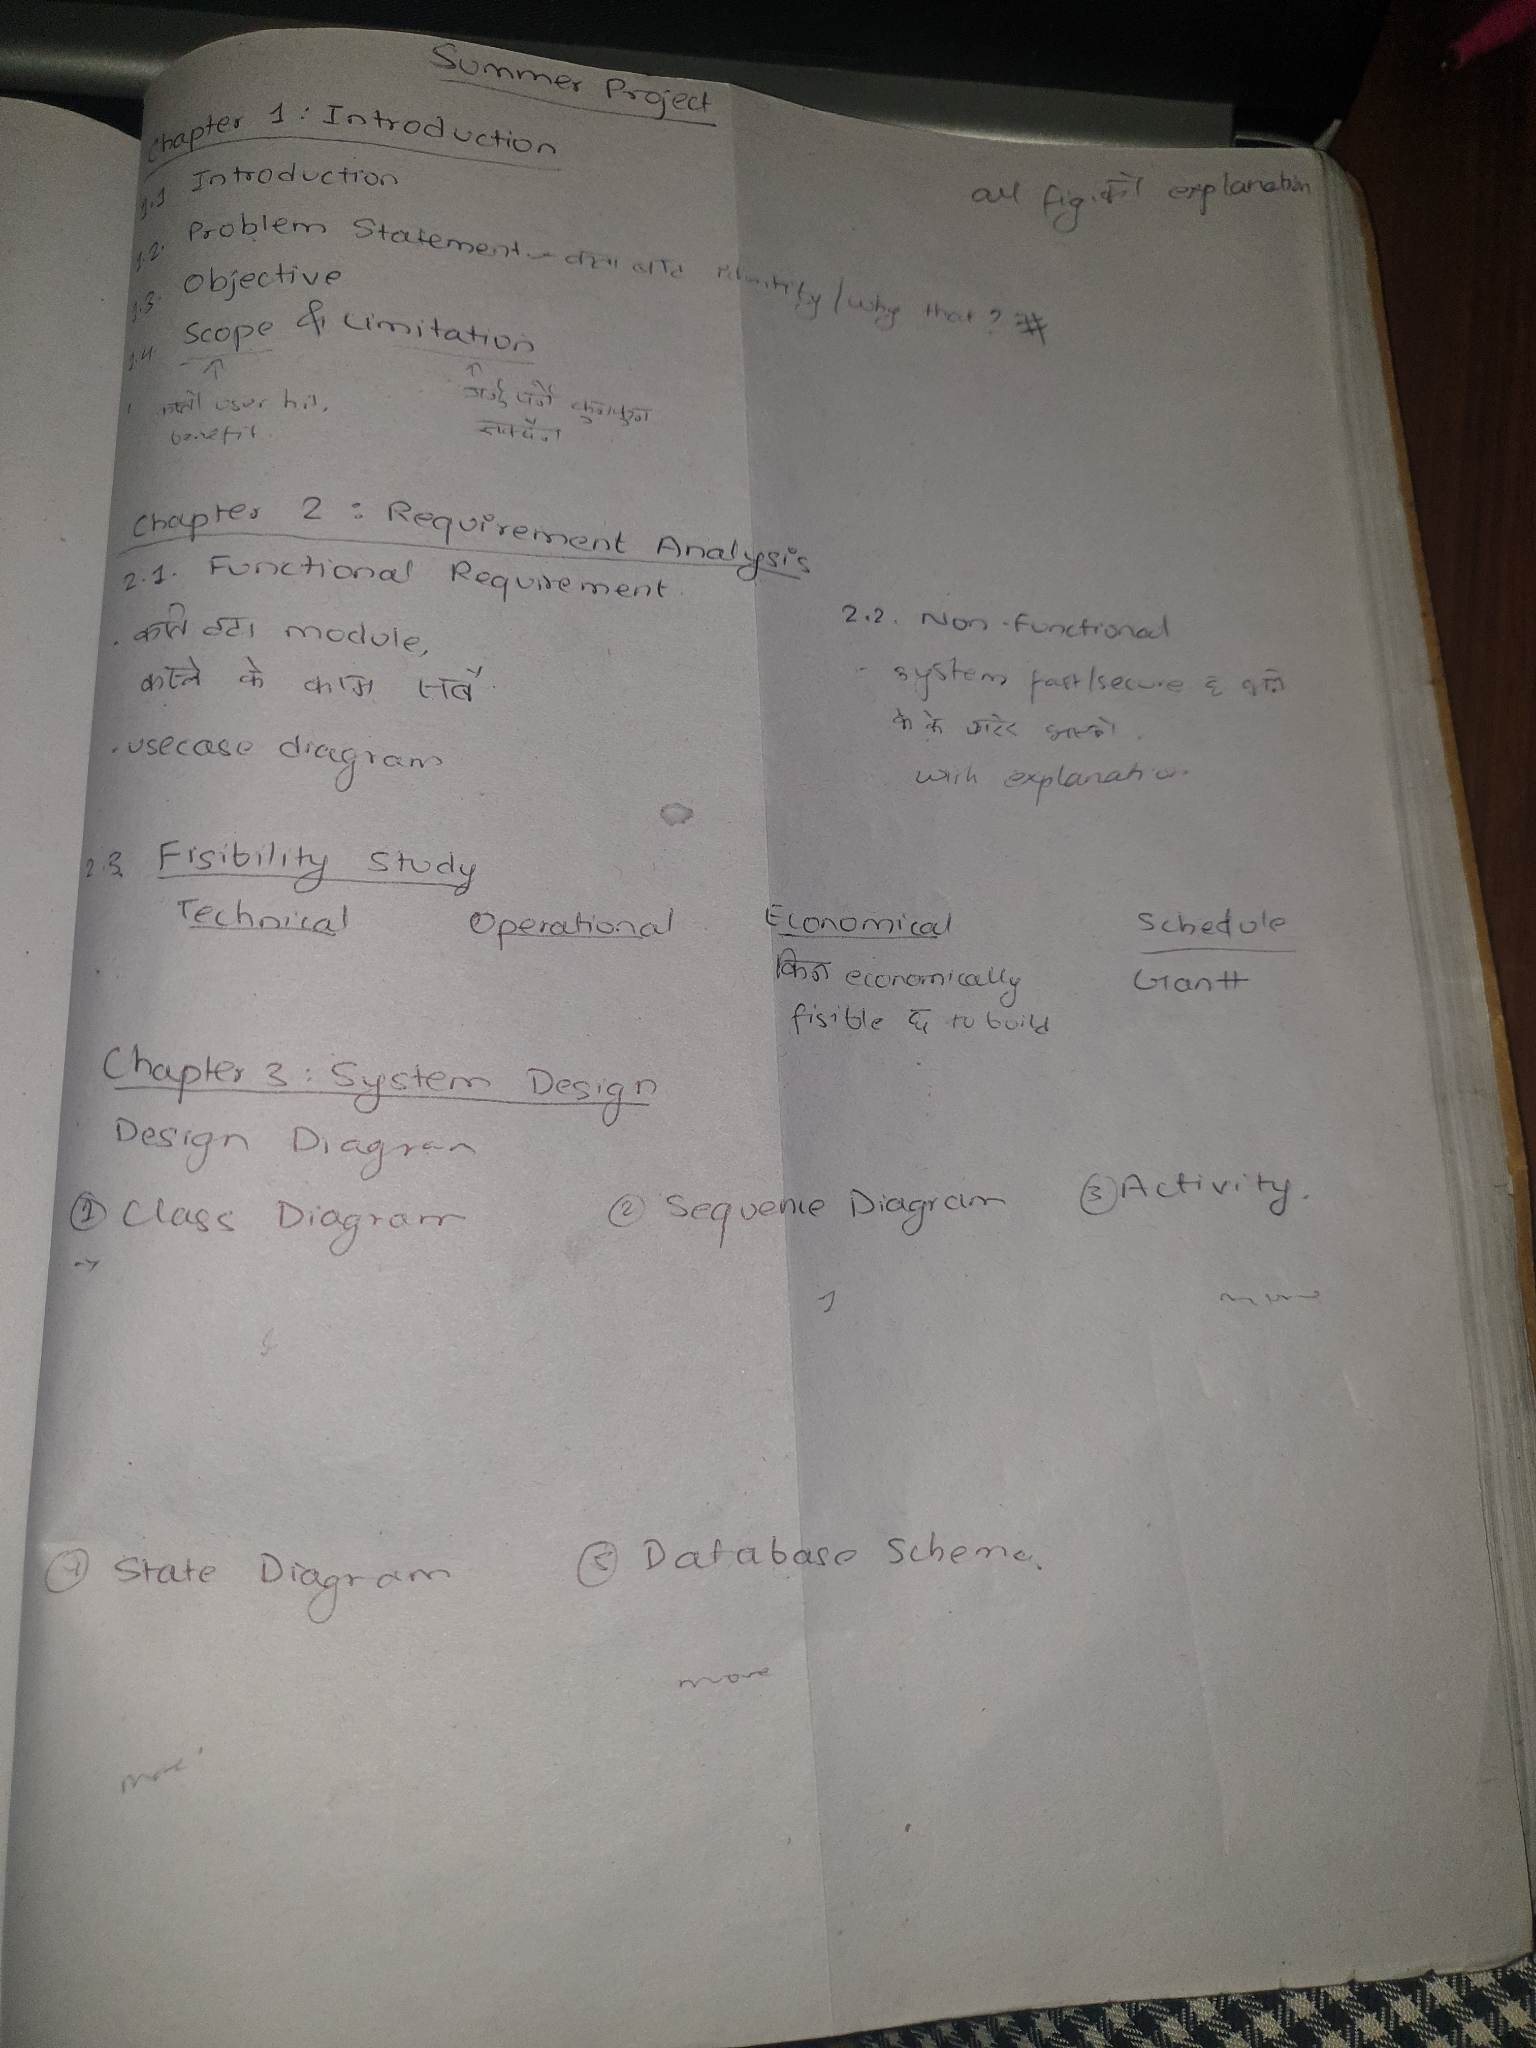 Summer Project
Chapter 1 : Introduction
1.1 Introduction
all fig.को explanation
1.2. Problem Statement
/ why that? #
1.3. Objective
1.4. Scope & Limitation
user hit,
benefit.
Chapter 2 : Requirement Analysis
2.1. Functional Requirement
. कति वटा module,
कस्ले के काम सबै
. usecase diagram
2.2. Non-functional
- system fast/secure छ भने
के के गरेर
with explanation
2.3 Fisibility Study
Technical Operational Economical Schedule
किन economically Gantt
fisible छ to build
Chapter 3 : System Design
Design Diagram
① Class Diagram ② Sequence Diagram ③ Activity.
→
1 more
④ State Diagram ⑤ Database Schema.
more
more